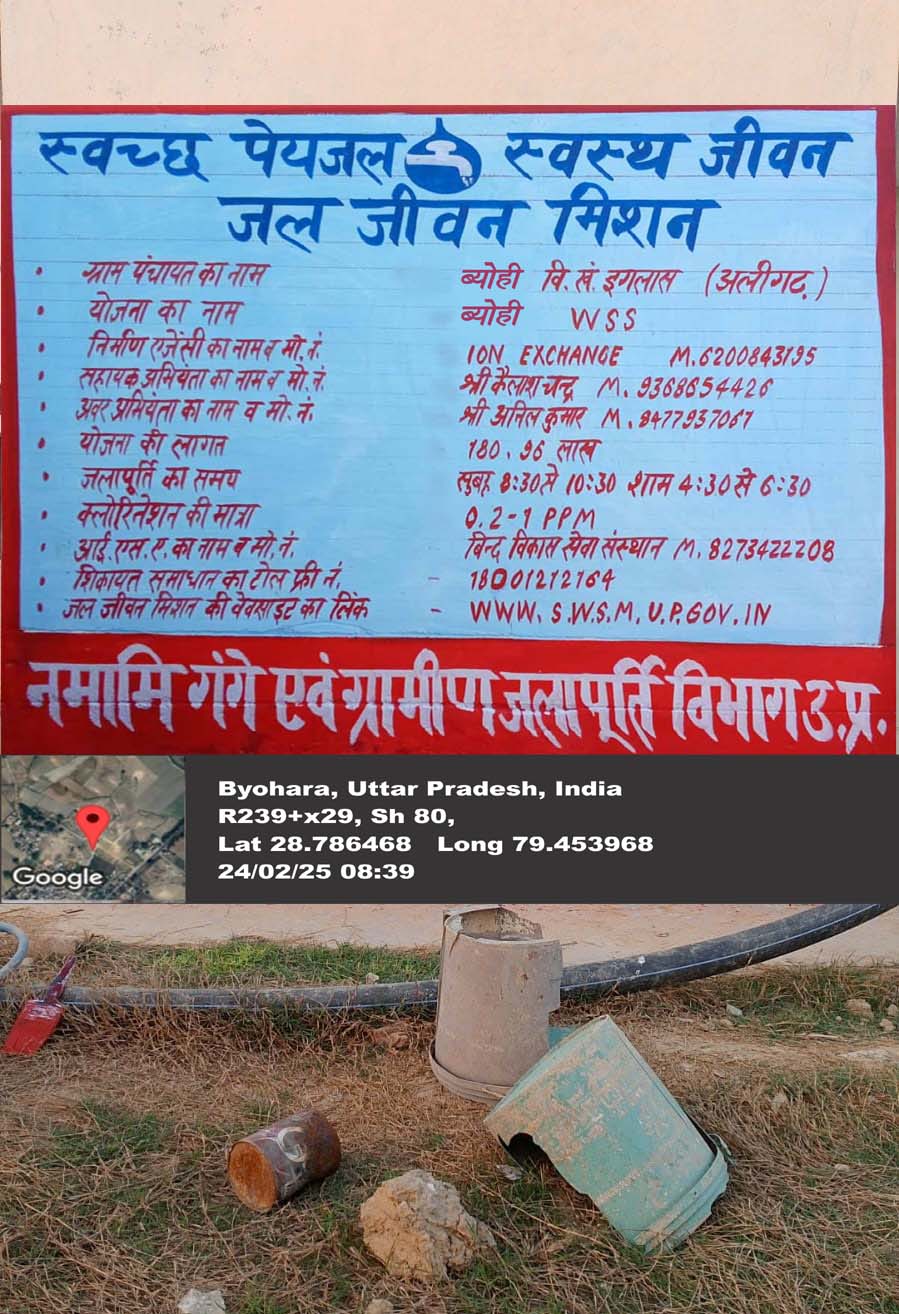 स्वच्छ पेयजल स्वस्थ जीवन
जल जीवन मिशन
• ग्राम पंचायत का नाम ब्योही वि.खं. इगलास (अलीगढ़)
• योजना का नाम ब्योही WSS
• निर्माण एजेंसी का नाम व मो.नं. ION EXCHANGE M.6200843195
• सहायक अभियंता का नाम व मो.नं. श्री कैलाश चन्द्र M.9368654426
• अवर अभियंता का नाम व मो.नं. श्री अनिल कुमार M.8477937067
• योजना की लागत 180.96 लाख
• जलापूर्ति का समय सुबह 8:30 से 10:30 शाम 4:30 से 6:30
• क्लोरिनेशन की मात्रा 0.2-1 PPM
• आई.एस.ए. का नाम व मो.नं. बिन्द विकास सेवा संस्थान M.8273422208
• शिकायत समाधान का टोल फ्री नं. - 18001212164
• जल जीवन मिशन की वेवसाइट का लिंक - WWW.S.W.S.M.U.P.GOV.IN
नमामि गंगे एवं ग्रामीण जलापूर्ति विभाग उ.प्र.
Byohara, Uttar Pradesh, India
R239+x29, Sh 80,
Lat 28.786468 Long 79.453968
24/02/25 08:39
Google